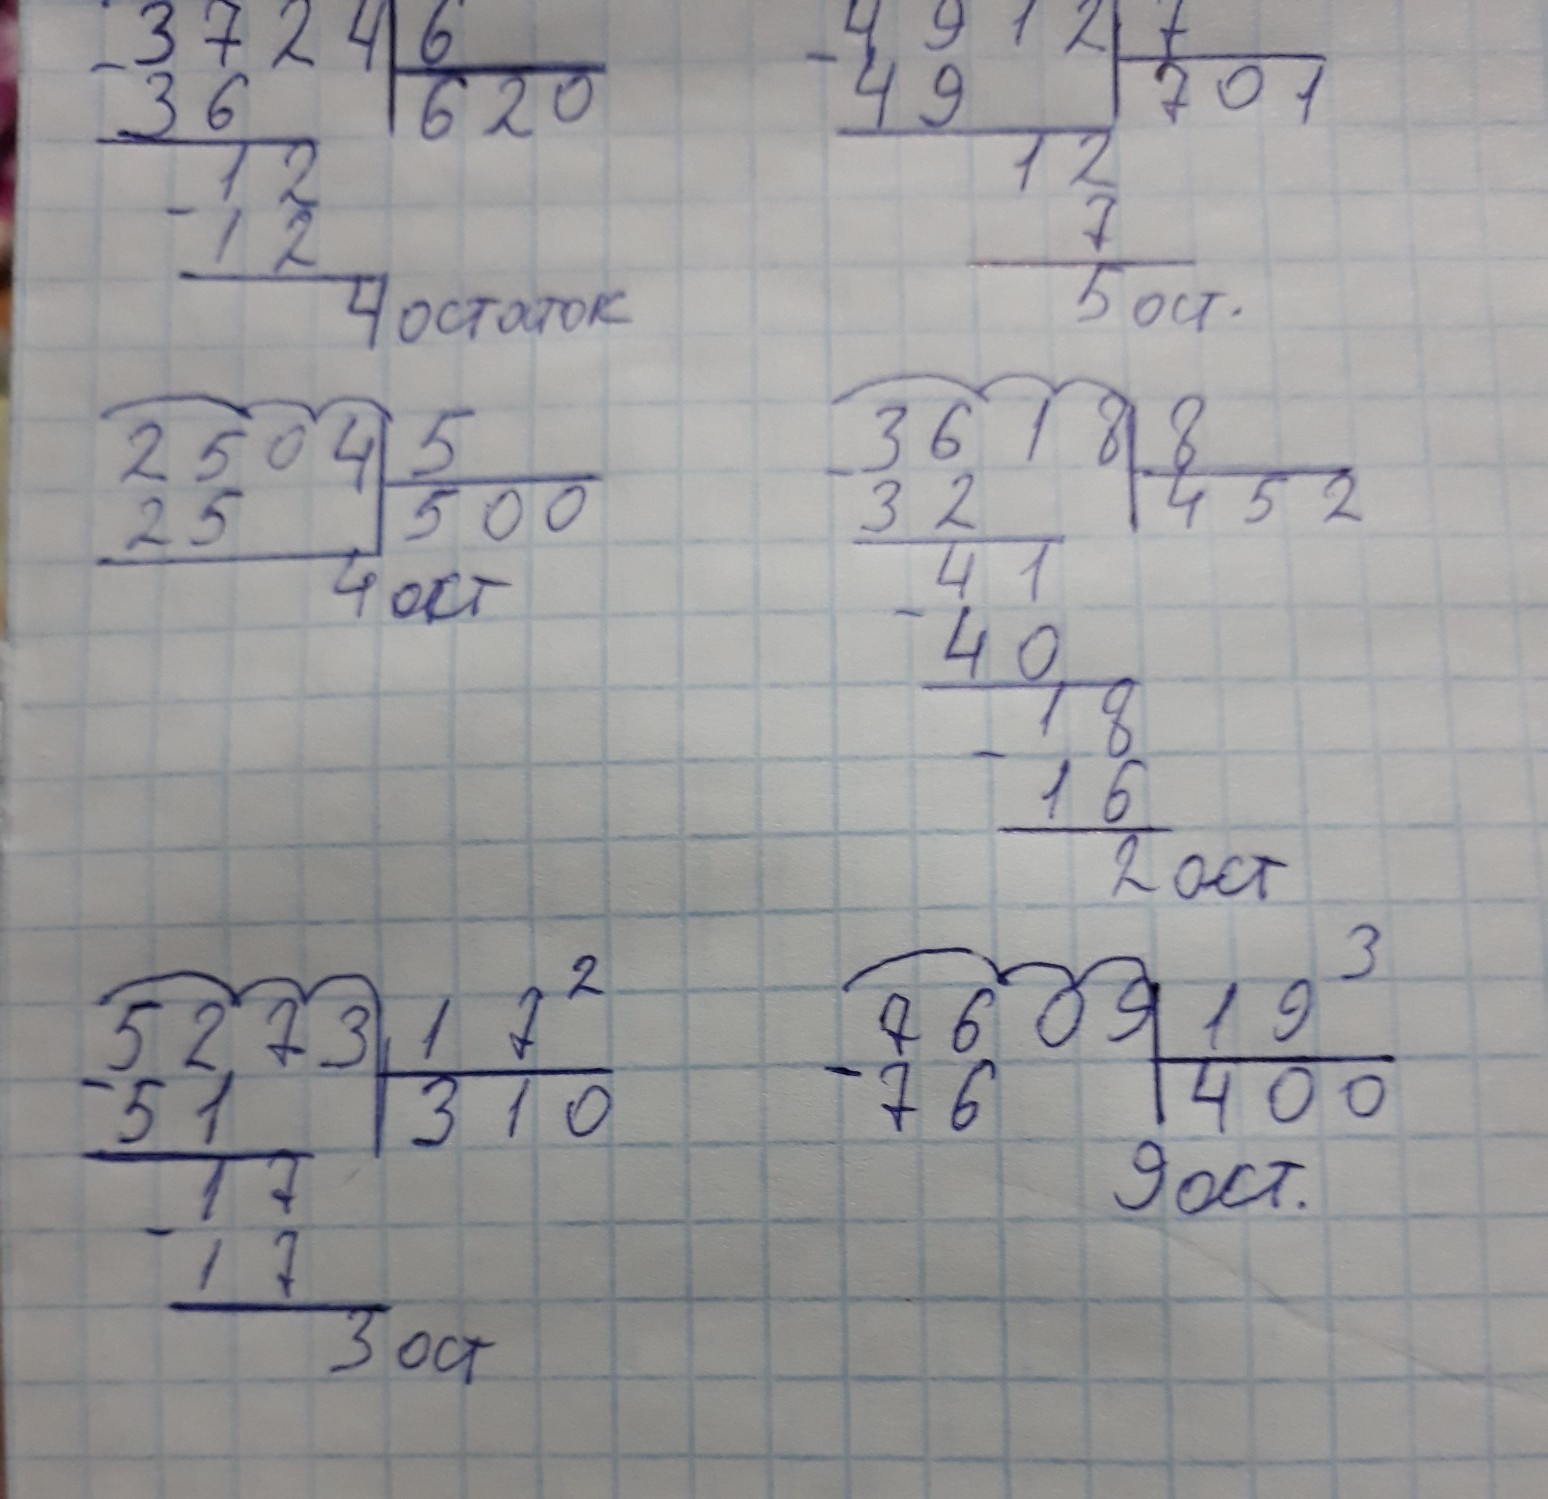 3724 6
- 36 620
12
- 12
4 остаток
4912 7
- 49 701
12
7
5 ост.
2504 5
25 500
4 ост
3618 8
- 32 452
41
- 40
18
- 16
2 ост
2
5273 17
- 51 310
17
- 17
3 ост
3
7609 19
- 76 400
9 ост.